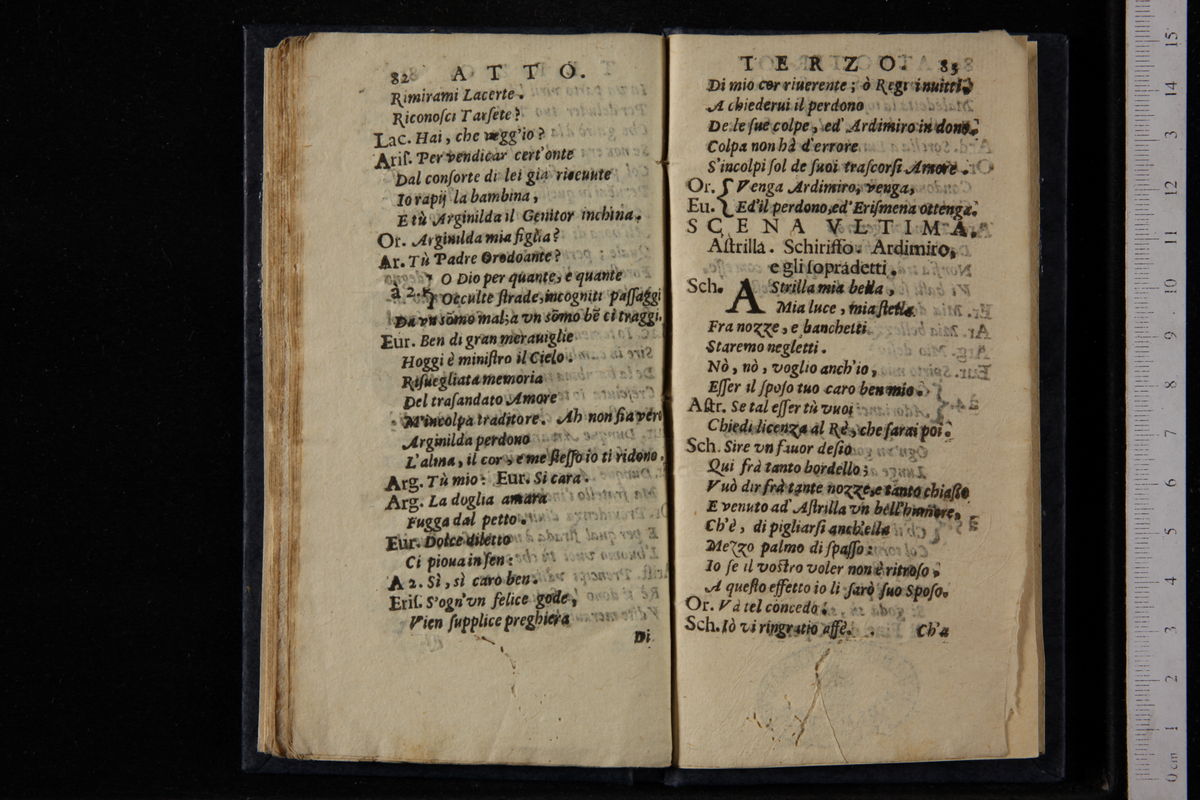 82 ATTO.
Rimirami Lacerte.
Riconosci Tarsete?
Lac. Hai, che vegg'io?
Aris. Per vendicar cert'onte
Dal consorte di lei gia riceuute
Io rapij la bambina,
E tù Arginilda il Genitor inchina.
Or. Arginilda mia figlia?
Ar. Tù Padre Oredoante?
à 2. O Dio per quante, e quante
Occulte strade, incogniti passaggi
Da vn sōmo mal, a vn sōmo bē ci traggi.
Eur. Ben di gran merauiglie
Hoggi è ministro il Cielo.
Risuegliata memoria
Del trasandato Amore
M'incolpa traditore. Ah non fia vero
Arginilda perdono
L'alma, il cor, e me stesso io ti ridono.
Arg. Tù mio: Eur. Si cara.
Arg. La doglia amara
Fugga dal petto.
Eur. Dolce diletto
Ci pioua in sen:
A 2. Sì, sì caro ben.
Eris. S'ogn'vn felice gode,
Vien supplice preghiera
Di
TERZO. 83
Di mio cor riuerente; ò Regi inuitti,
A chiederui il perdono
De le sue colpe, ed' Ardimiro in dono.
Colpa non hà d'errore
S'incolpi sol de suoi trascorsi Amore.
Or. { Venga Ardimiro, venga,
Eu. { Ed'il perdono, ed' Erismena ottenga.
SCENA VLTIMA.
Astrilla. Schiriffo. Ardimiro,
e gli sopradetti.
Sch. AStrilla mia bella,
Mia luce, mia stella
Fra nozze, e banchetti
Staremo negletti.
Nò, nò, voglio anch'io,
Esser il sposo tuo caro ben mio.
Astr. Se tal esser tù vuoi
Chiedi licenza al Rè, che sarai poi.
Sch. Sire vn fauor desio
Qui frà tanto bordello;
Vuò dir frà tante nozze, e tanto chiasso
E venuto ad' Astrilla vn bell'humore,
Ch'è, di pigliarsi anch'ella
Mezzo palmo di spasso:
Io se il vostro voler non è ritroso,
A questo effetto io li sarò suo Sposo.
Or. Và tel concedo.
Sch. Iò vi ringratio affè. Ch'a
15
14
13
12
11
10
9
8
7
6
5
4
3
2
1
0 cm